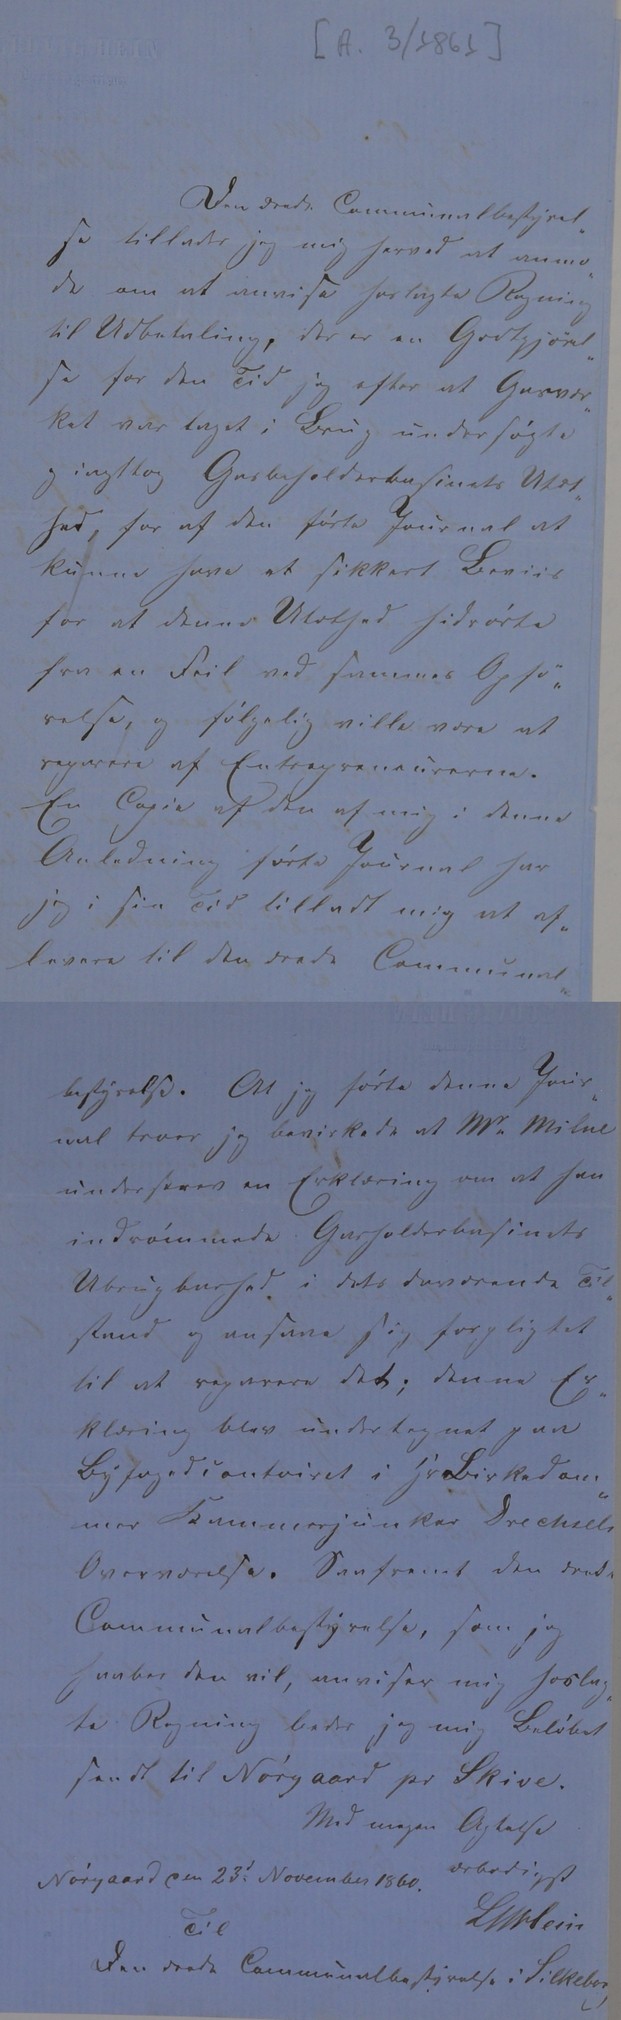 [A. 3/1861]
Den ærede Communalbestyrel„
se tillader jeg mig herved at anmo„
de om at anvise hoslagte Regning
til Udbetaling, der er en Godtgjörel„
se for den Tid jeg efter at Gasvær„
ket var taget i Brug undersøgte
og iagttog Gasbeholderbasinets Utæt„
hed, for af den förte Journal at
kunne have et sikkert Beviis
for at denne Utæthed hidrörte
fra en Feil ved sammes Opfö„
relse, og fölgelig ville være at
reparere af Entrepreneurerne.
En Copie af den af mig i denne
Anledning förte Journal har
jeg i sin Tid tilladt mig at af„
levere til den ærede Communal„
bestyrelse. At jeg förte denne Jour„
nal troer jeg bevirkede at Mr. Milne
underskrev en Erklæring om at han
indrömmede Gasholderbasinets
Ubrugbarhed i dets daværende Til„
stand og ansaae sig forpligtet
til at reparere det; denne Er„
klæring blev undertegnet paa
Byfogedcontoiret i Hr Birkedom„
mer Kammerjunker Drechsels
Overværelse. Saafremt den ærede
Communalbestyrelse, som jeg
haaber den vil, anviser mig hoslag„
te Regning beder jeg mig Belöbet
sendt til Nörgaard pr Skive.
Med megen Agtelse
ærbødigst
Nörgaard den 23' November 1860.
Til
Den ærede Communalbestyrelse i Silkeborg